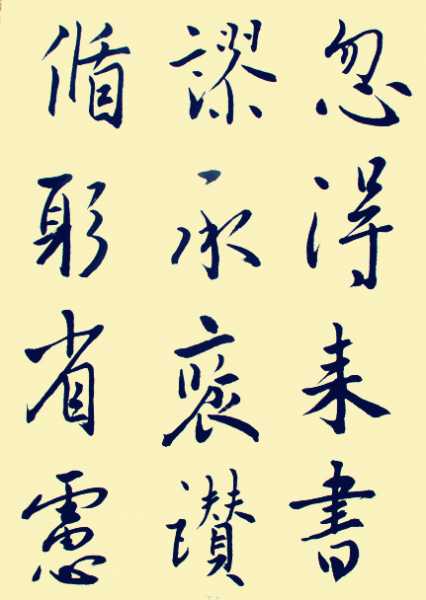 忽得来書
謬承褒讚
循躬省慮